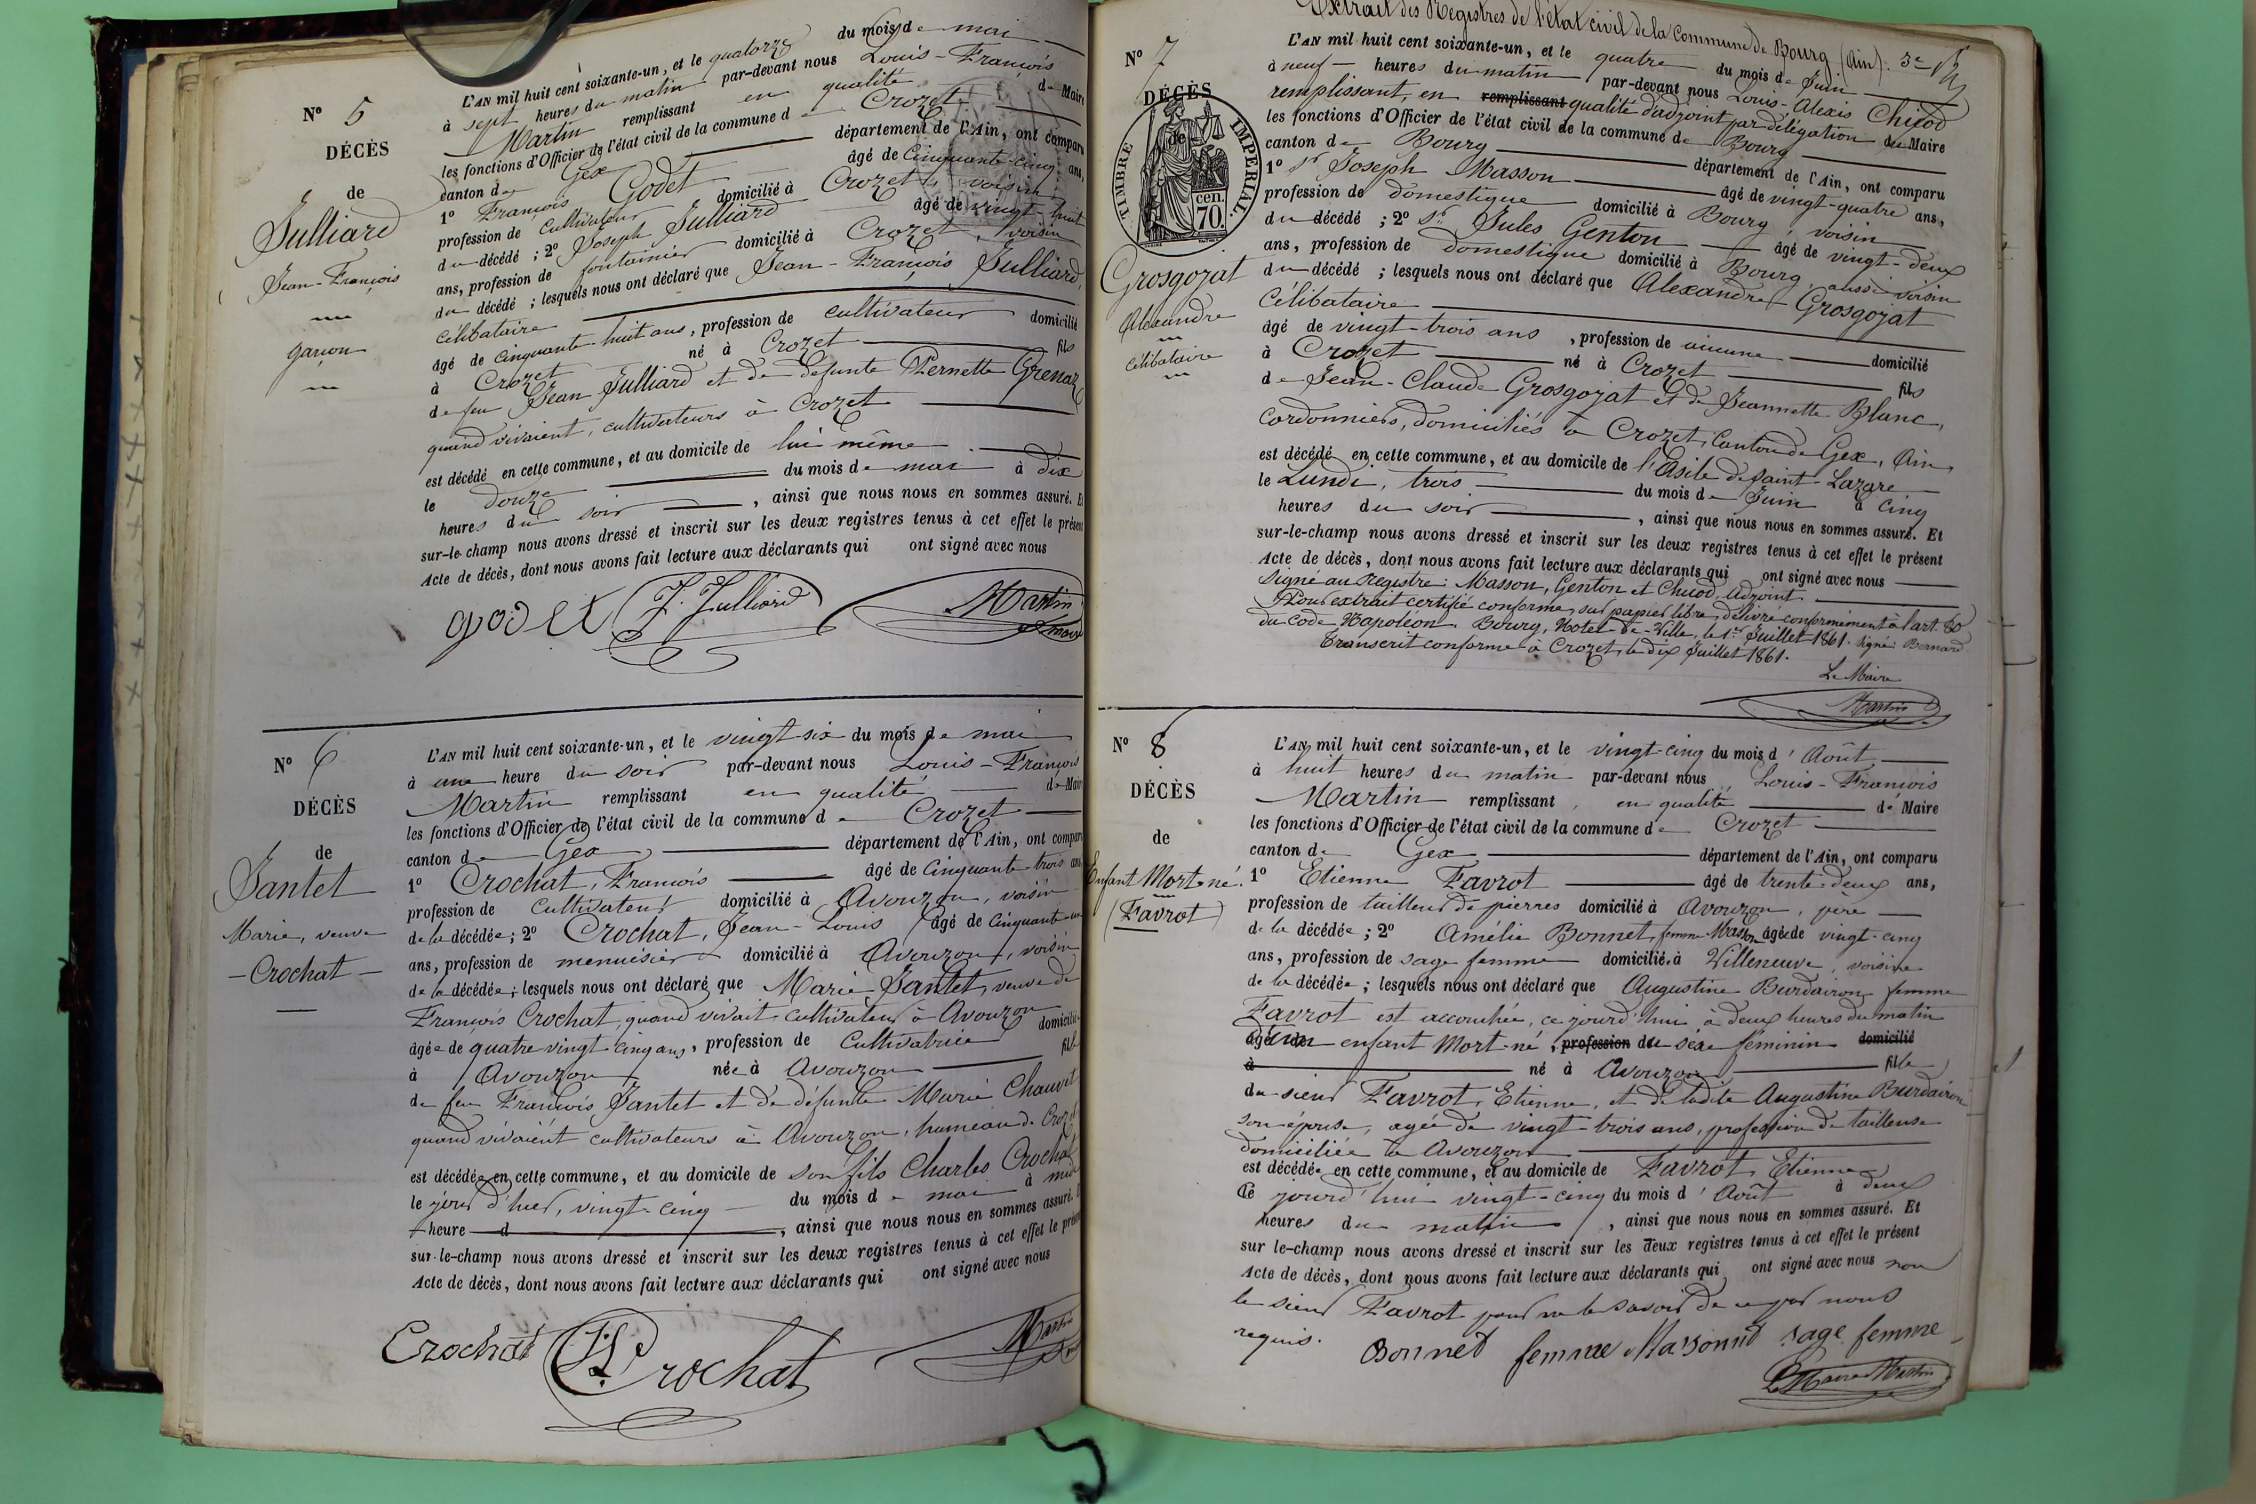 N° 5
DÉCÈS
de
Julliard
Jean-François
garçon
L'AN mil huit cent soixante-un, et le quatorze du mois de mai
à sept heures du matin par-devant nous Louis-François
Martin remplissant en qualité de Maire
les fonctions d'Officier de l'état civil de la commune de Crozet
canton de Gex département de l'Ain, ont comparu
1° François Godet âgé de cinquante-cinq ans,
profession de cultivateur domicilié à Crozet, voisin
du décédé ; 2° Joseph Julliard âgé de vingt-huit
ans, profession de fontainier domicilié à Crozet, voisin
du décédé ; lesquels nous ont déclaré que Jean-François Julliard,
célibataire
âgé de cinquante huit ans, profession de cultivateur domicilié
à Crozet né à Crozet fils
de feu Jean Julliard et de défunte Pernette Grenaz
quand vivaient, cultivateurs à Crozet
est décédé en cette commune, et au domicile de lui même
le douze du mois de mai à dix
heures du soir, ainsi que nous nous en sommes assuré. Et
sur-le-champ nous avons dressé et inscrit sur les deux registres tenus à cet effet le présent
Acte de décès, dont nous avons fait lecture aux déclarants qui ont signé avec nous
godet J. Julliard Martin
maire
N° 6
DÉCÈS
de
Jantet
Marie, veuve
Crochat
L'AN mil huit cent soixante-un, et le vingt-six du mois de mai
à une heure du soir par-devant nous Louis-François
Martin remplissant en qualité de Maire
les fonctions d'Officier de l'état civil de la commune de Crozet
canton de Gex département de l'Ain, ont comparu
1° Crochat, François âgé de cinquante-trois ans
profession de cultivateur domicilié à Avouzon, voisin
de la décédée ; 2° Crochat, Jean-Louis âgé de cinquante-un
ans, profession de menuisier domicilié à Avouzon, voisin
de la décédée ; lesquels nous ont déclaré que Marie Jantet, veuve de
François Crochat, quand vivait cultivateur à Avouzon
âgée de quatre vingt cinq ans, profession de Cultivatrice domiciliée
à Avouzon née à Avouzon fille
de feu François Jantet et de défunte Marie Chauvet
quand vivaient cultivateurs à Avouzon, hameau de Crozet
est décédée en cette commune, et au domicile de son fils Charles Crochat
le jour d'hier, vingt-cinq du mois de mai à midi
heure d , ainsi que nous nous en sommes assuré. Et
sur-le-champ nous avons dressé et inscrit sur les deux registres tenus à cet effet le présent
Acte de décès, dont nous avons fait lecture aux déclarants qui ont signé avec nous
Crochat Crochat Martin
Extrait des Registres de l'état civil de la Commune de Bourg (Ain).
N° 7
DÉCÈS
de
TIMBRE IMPERIAL.
cen.
70.
Grosgojat
Alexandre
célibataire
L'AN mil huit cent soixante-un, et le quatre du mois de Juin
à neuf heures du matin par-devant nous Louis-Alexis Chicod
remplissant, en remplissant qualité d'adjoint par délégation du Maire
les fonctions d'Officier de l'état civil de la commune de Bourg
canton de Bourg département de l'Ain, ont comparu
1° Sr Joseph Masson âgé de vingt-quatre ans,
profession de domestique domicilié à Bourg, voisin
du décédé ; 2° Sr Jules Genton âgé de vingt-deux
ans, profession de domestique domicilié à Bourg, aussi voisin
du décédé ; lesquels nous ont déclaré que Alexandre Grosgojat
Célibataire
âgé de vingt-trois ans, profession de aucune domicilié
à Crozet né à Crozet fils
de Jean-Claude Grosgojat et de Jeannette Blanc,
cordonniers, domiciliés à Crozet, Canton de Gex, Ain,
est décédé en cette commune, et au domicile de l'Asile de Saint-Lazare
le Lundi, trois du mois de Juin à cinq
heures du soir, ainsi que nous nous en sommes assuré. Et
sur-le-champ nous avons dressé et inscrit sur les deux registres tenus à cet effet le présent
Acte de décès, dont nous avons fait lecture aux déclarants qui ont signé avec nous
Signé au Registre: Masson, Genton et Chicod, adjoint.
Pour extrait certifié conforme, sur papier libre, délivré conformément à l'art. 80
du code Napoléon. Bourg, Hotel-de-Ville, le 1er Juillet 1861. Signé: Bernard
Transcrit conforme à Crozet, le dix Juillet 1861.
Le Maire
Martin
N° 8
DÉCÈS
de
Enfant Mort-né.
(Favrot)
L'AN mil huit cent soixante-un, et le vingt-cinq du mois d'Août
à huit heures du matin par-devant nous Louis-François
Martin remplissant, en qualité de Maire
les fonctions d'Officier de l'état civil de la commune de Crozet
canton de Gex département de l'Ain, ont comparu
1° Etienne Favrot âgé de trente-deux ans,
profession de tailleur de pierres domicilié à Avouzon, père
de la décédée ; 2° Amélie Bonnet, femme Masson âgée de vingt-cinq
ans, profession de sage femme domiciliée à Villeneuve, voisine
de la décédée ; lesquels nous ont déclaré que Augustine Burdairon femme
Favrot est accouchée, ce jourd'hui à deux heures du matin
d'un enfant Mort-né, profession du sexe féminin domicilié
à né à Avouzon fille
du sieur Favrot, Etienne, et de ladite Augustine Burdairon
son épouse, agée de vingt-trois ans, profession de tailleuse
domiciliée à Avouzon
est décédée en cette commune, et au domicile de Favrot, Etienne
Ce jourd'hui vingt-cinq du mois d'Août à deux
heures du matin, ainsi que nous nous en sommes assuré. Et
sur le-champ nous avons dressé et inscrit sur les deux registres tenus à cet effet le présent
Acte de décès, dont nous avons fait lecture aux déclarants qui ont signé avec nous non
le sieur Favrot pour ne le savoir de ce par nous
requis.
Bonned femme Masonnd sage femme
Le Maire Martin